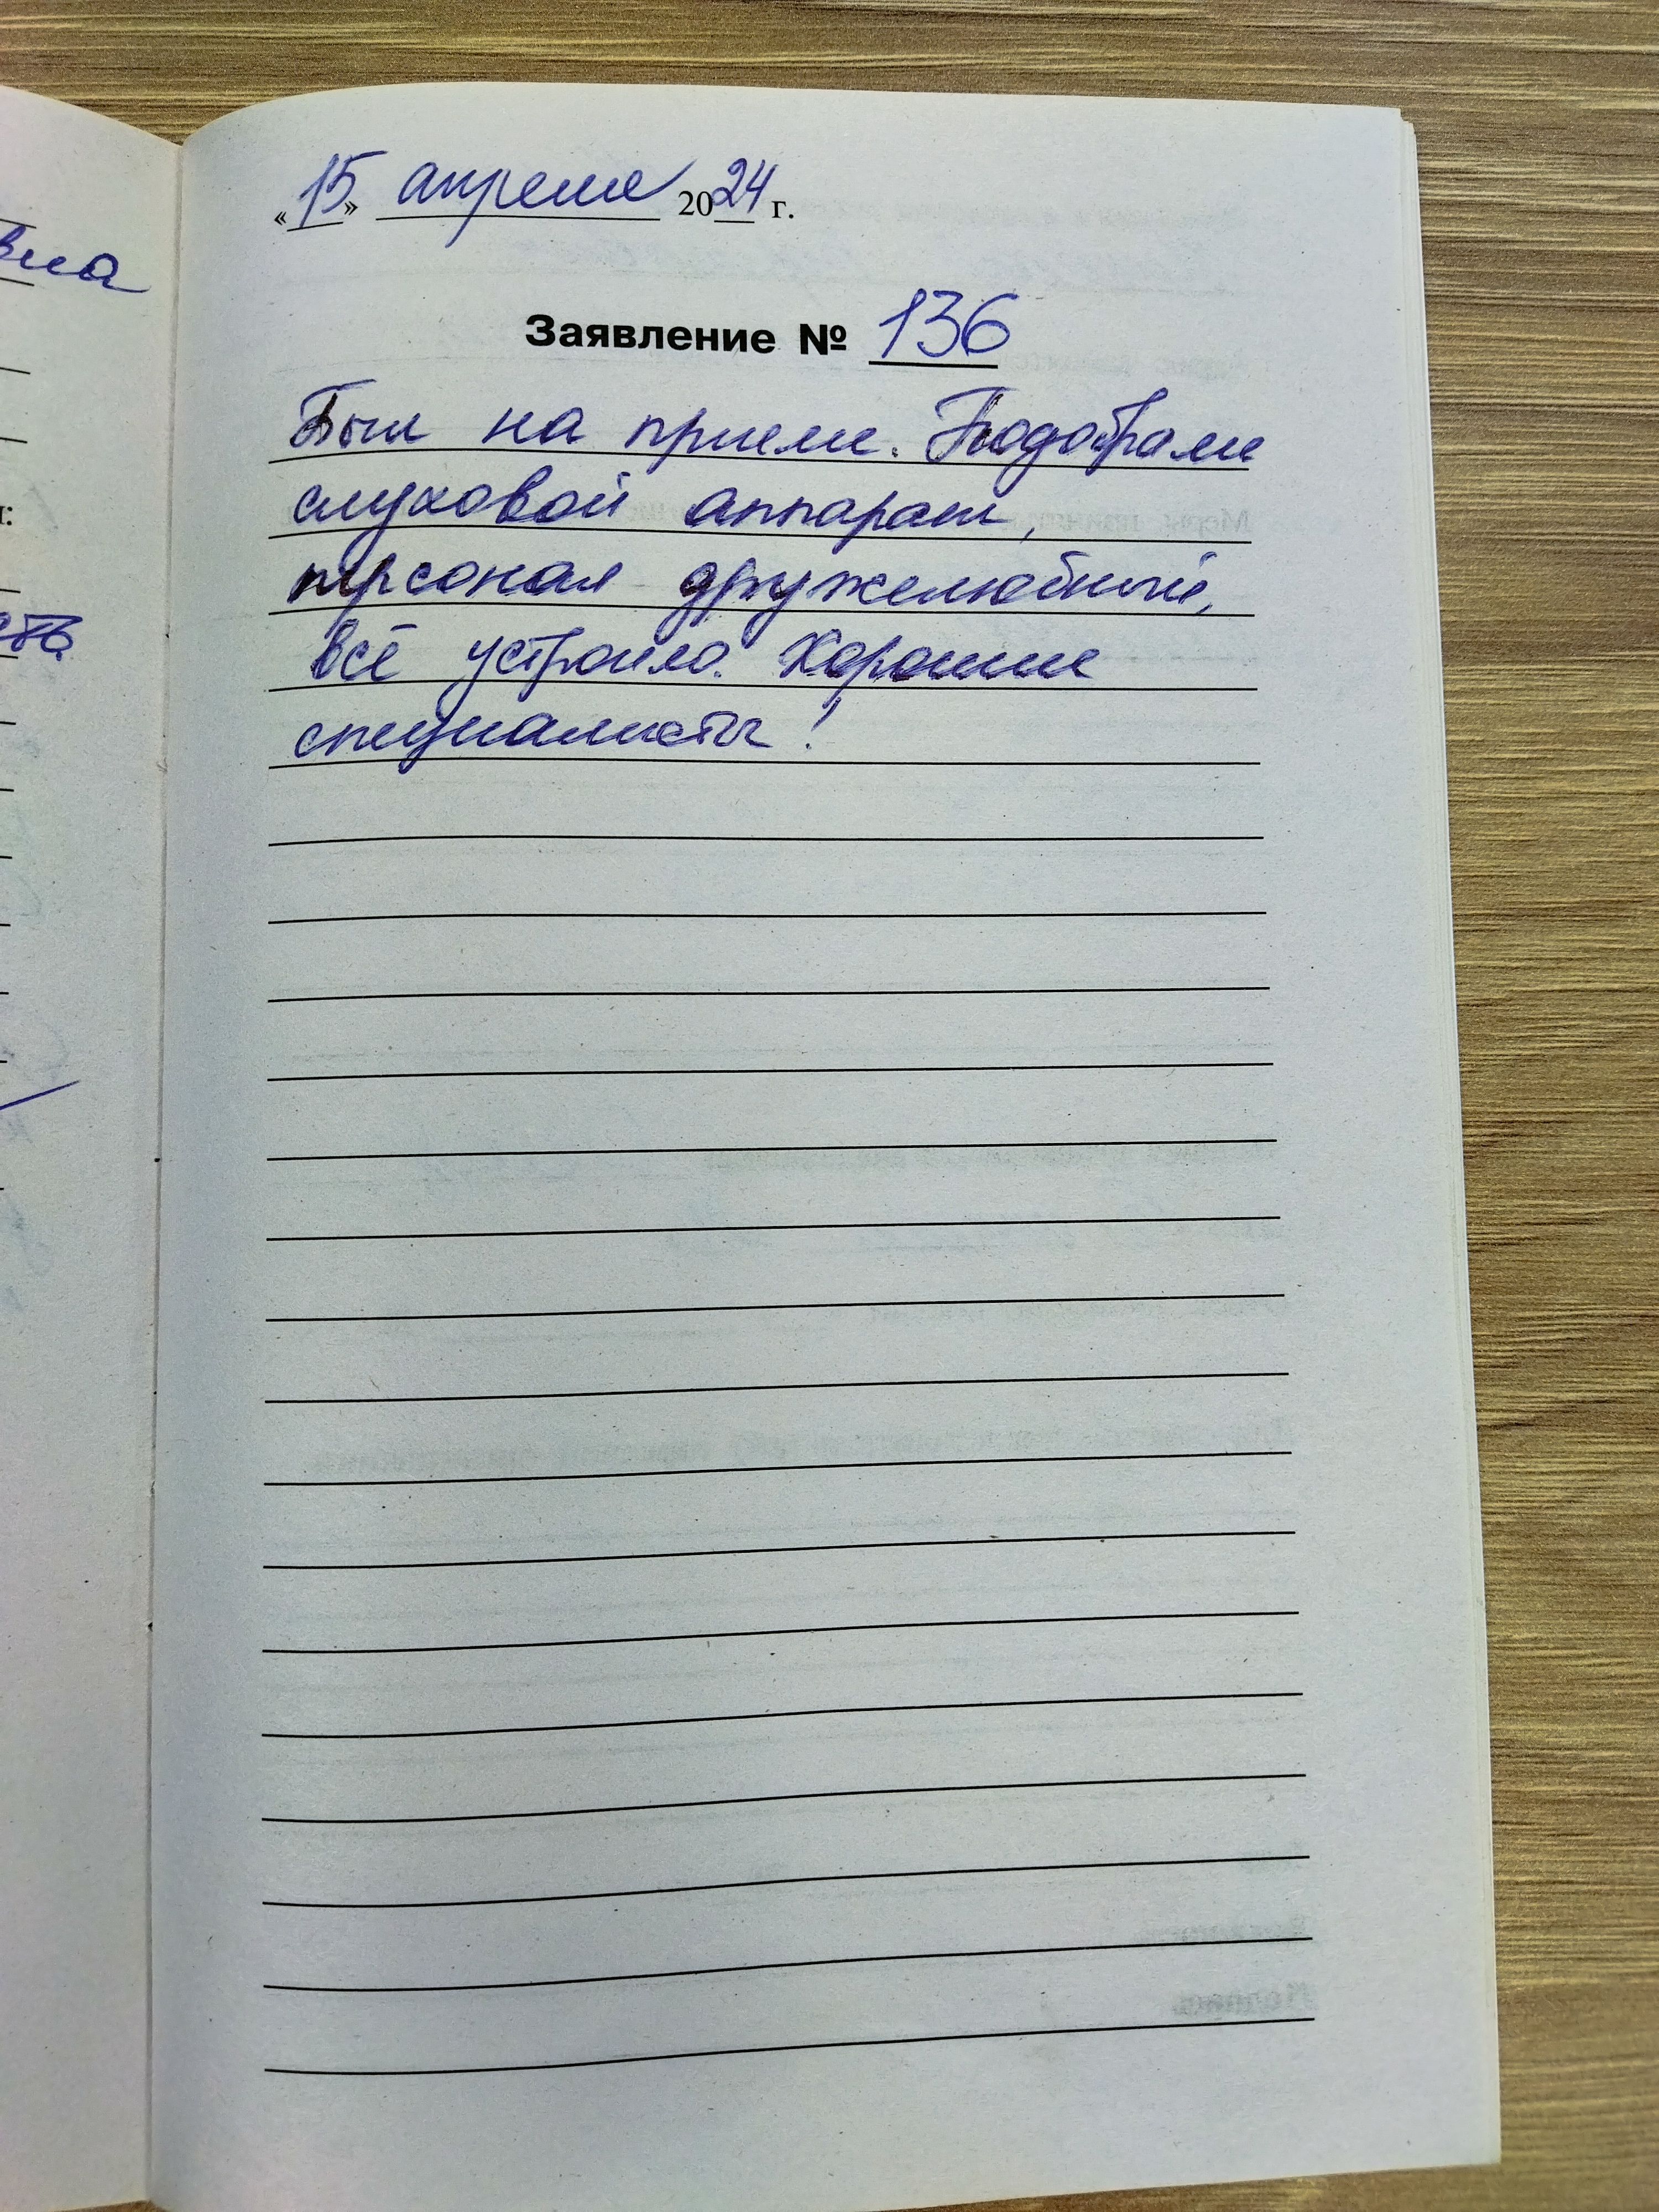 «15» апреля 2024 г.
Заявление № 136
Был на приеме. Подобрали
слуховой аппарат,
персонал дружелюбный,
всё устроило. Хорошие
специалисты!